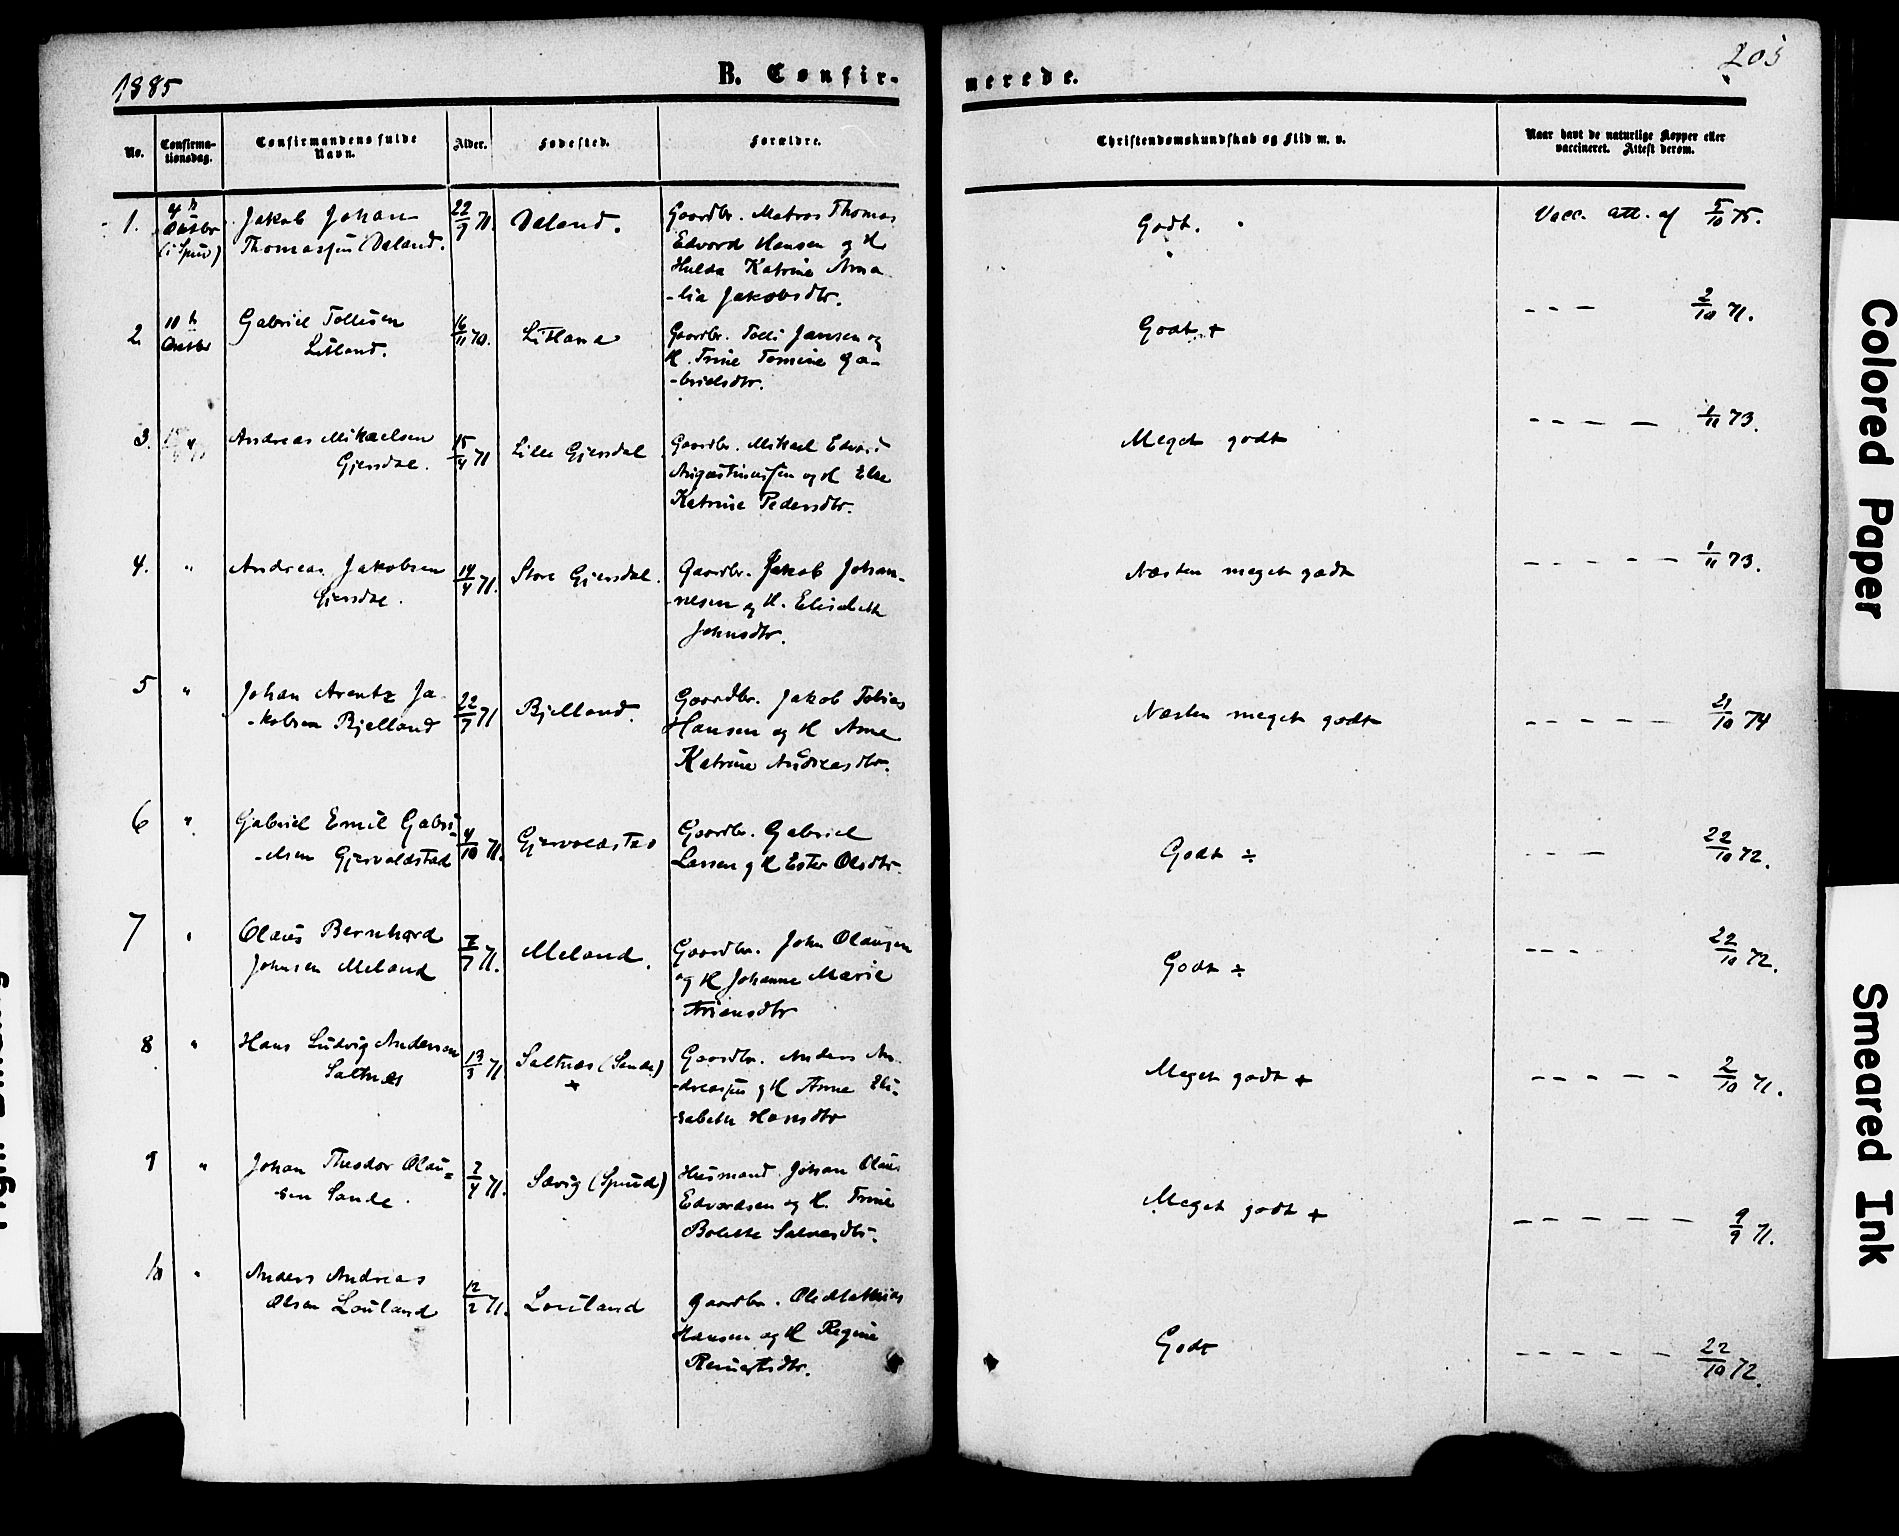 1885
B. Confir-
merede.
No.
Confirma-
tionsdag.
Confirmandens fulde
Navn.
Alder.
Fødested.
Forældre.
Christendomskundskab og Flid m. v.
Naar havt de naturlige Kopper eller
vaccineret. Attest derom.
1.
4de
Octbr
Jakob Johan
Thomassen Daland.
22/9 71.
Daland.
Gaardbr. Matros Thomas
Edvard Hansen og H.
Hulda Katrine Ama
-lia Jakobsdtr.
Godt.
Vacc. att. af 5/10 75.
2
11te
Octbr
Gabriel Tollisen
Litland.
16/11 70.
Litland
Gaardbr. Tolli Jansen og
H. Trine Tomine Ga-
-brielsdtr.
Godt +
- - - 2/10 71.
3.
"
Andreas Mikaelsen
Gjersdal.
15/4 71
Lille Gjersdal
Gaardbr. Mikael Edvard
Augustinussen og H Else
Katrine Pedersdtr.
Meget godt
- - - - 1/11 73.
4.
"
Andreas Jakobsen
Gjersdal.
14/4 71.
Store Gjersdal.
Gaardbr. Jakob Johan-
-nesen og H. Elisabeth
Johnsdtr.
Næsten meget godt
- - - - - 1/11 73.
5
"
Johan Arentz Ja
-kobsen Bjelland
22/7 71
Bjelland.
Gaardbr. Jakob Tobias
Hansen og H Anne
Katrine Andreasdtr.
Næsten meget godt
- - - - - 21/10 74
6
"
Gabriel Emil Gabri-
-elsen Gjervoldstad
4/10 71.
Gjervoldstad
Gaardbr. Gabriel
Larsen og H Ester Olsdtr.
Godt ÷
- - - 22/10 72.
7
"
Olaus Bernhard
Johnsen Meland
7/7 71.
Meland.
Gaardbr. John Olausen
og H Johanne Marie
Ariensdtr
Godt ÷
- - - 22/10 72.
8
"
Hans Ludvig Andersen
Saltnes
13/3 71
Saltnæs (Sande)
+
Gaardbr. Anders An-
-dreassen og H Anne Eli-
-sabeth Hansdtr
Meget godt +
- - - - - - 2/10 71.
9
"
Johan Theodor Olau-
-sen Sande.
7/4 71.
Sævig (Spind)
Husmand Johan Olaus
Edvardsen og H. Trine
Bolette Salvesdtr.
Meget godt +
- - - - - - 9/9 71.
10
"
Anders Andreas
Olsen Louland
12/2 71.
Louland
Gaardbr. Ole Mathias
Hansen og H Regine
Reinertsdtr.
Godt
- - - - - - 22/10 72.
Colored Paper
Smeared Ink